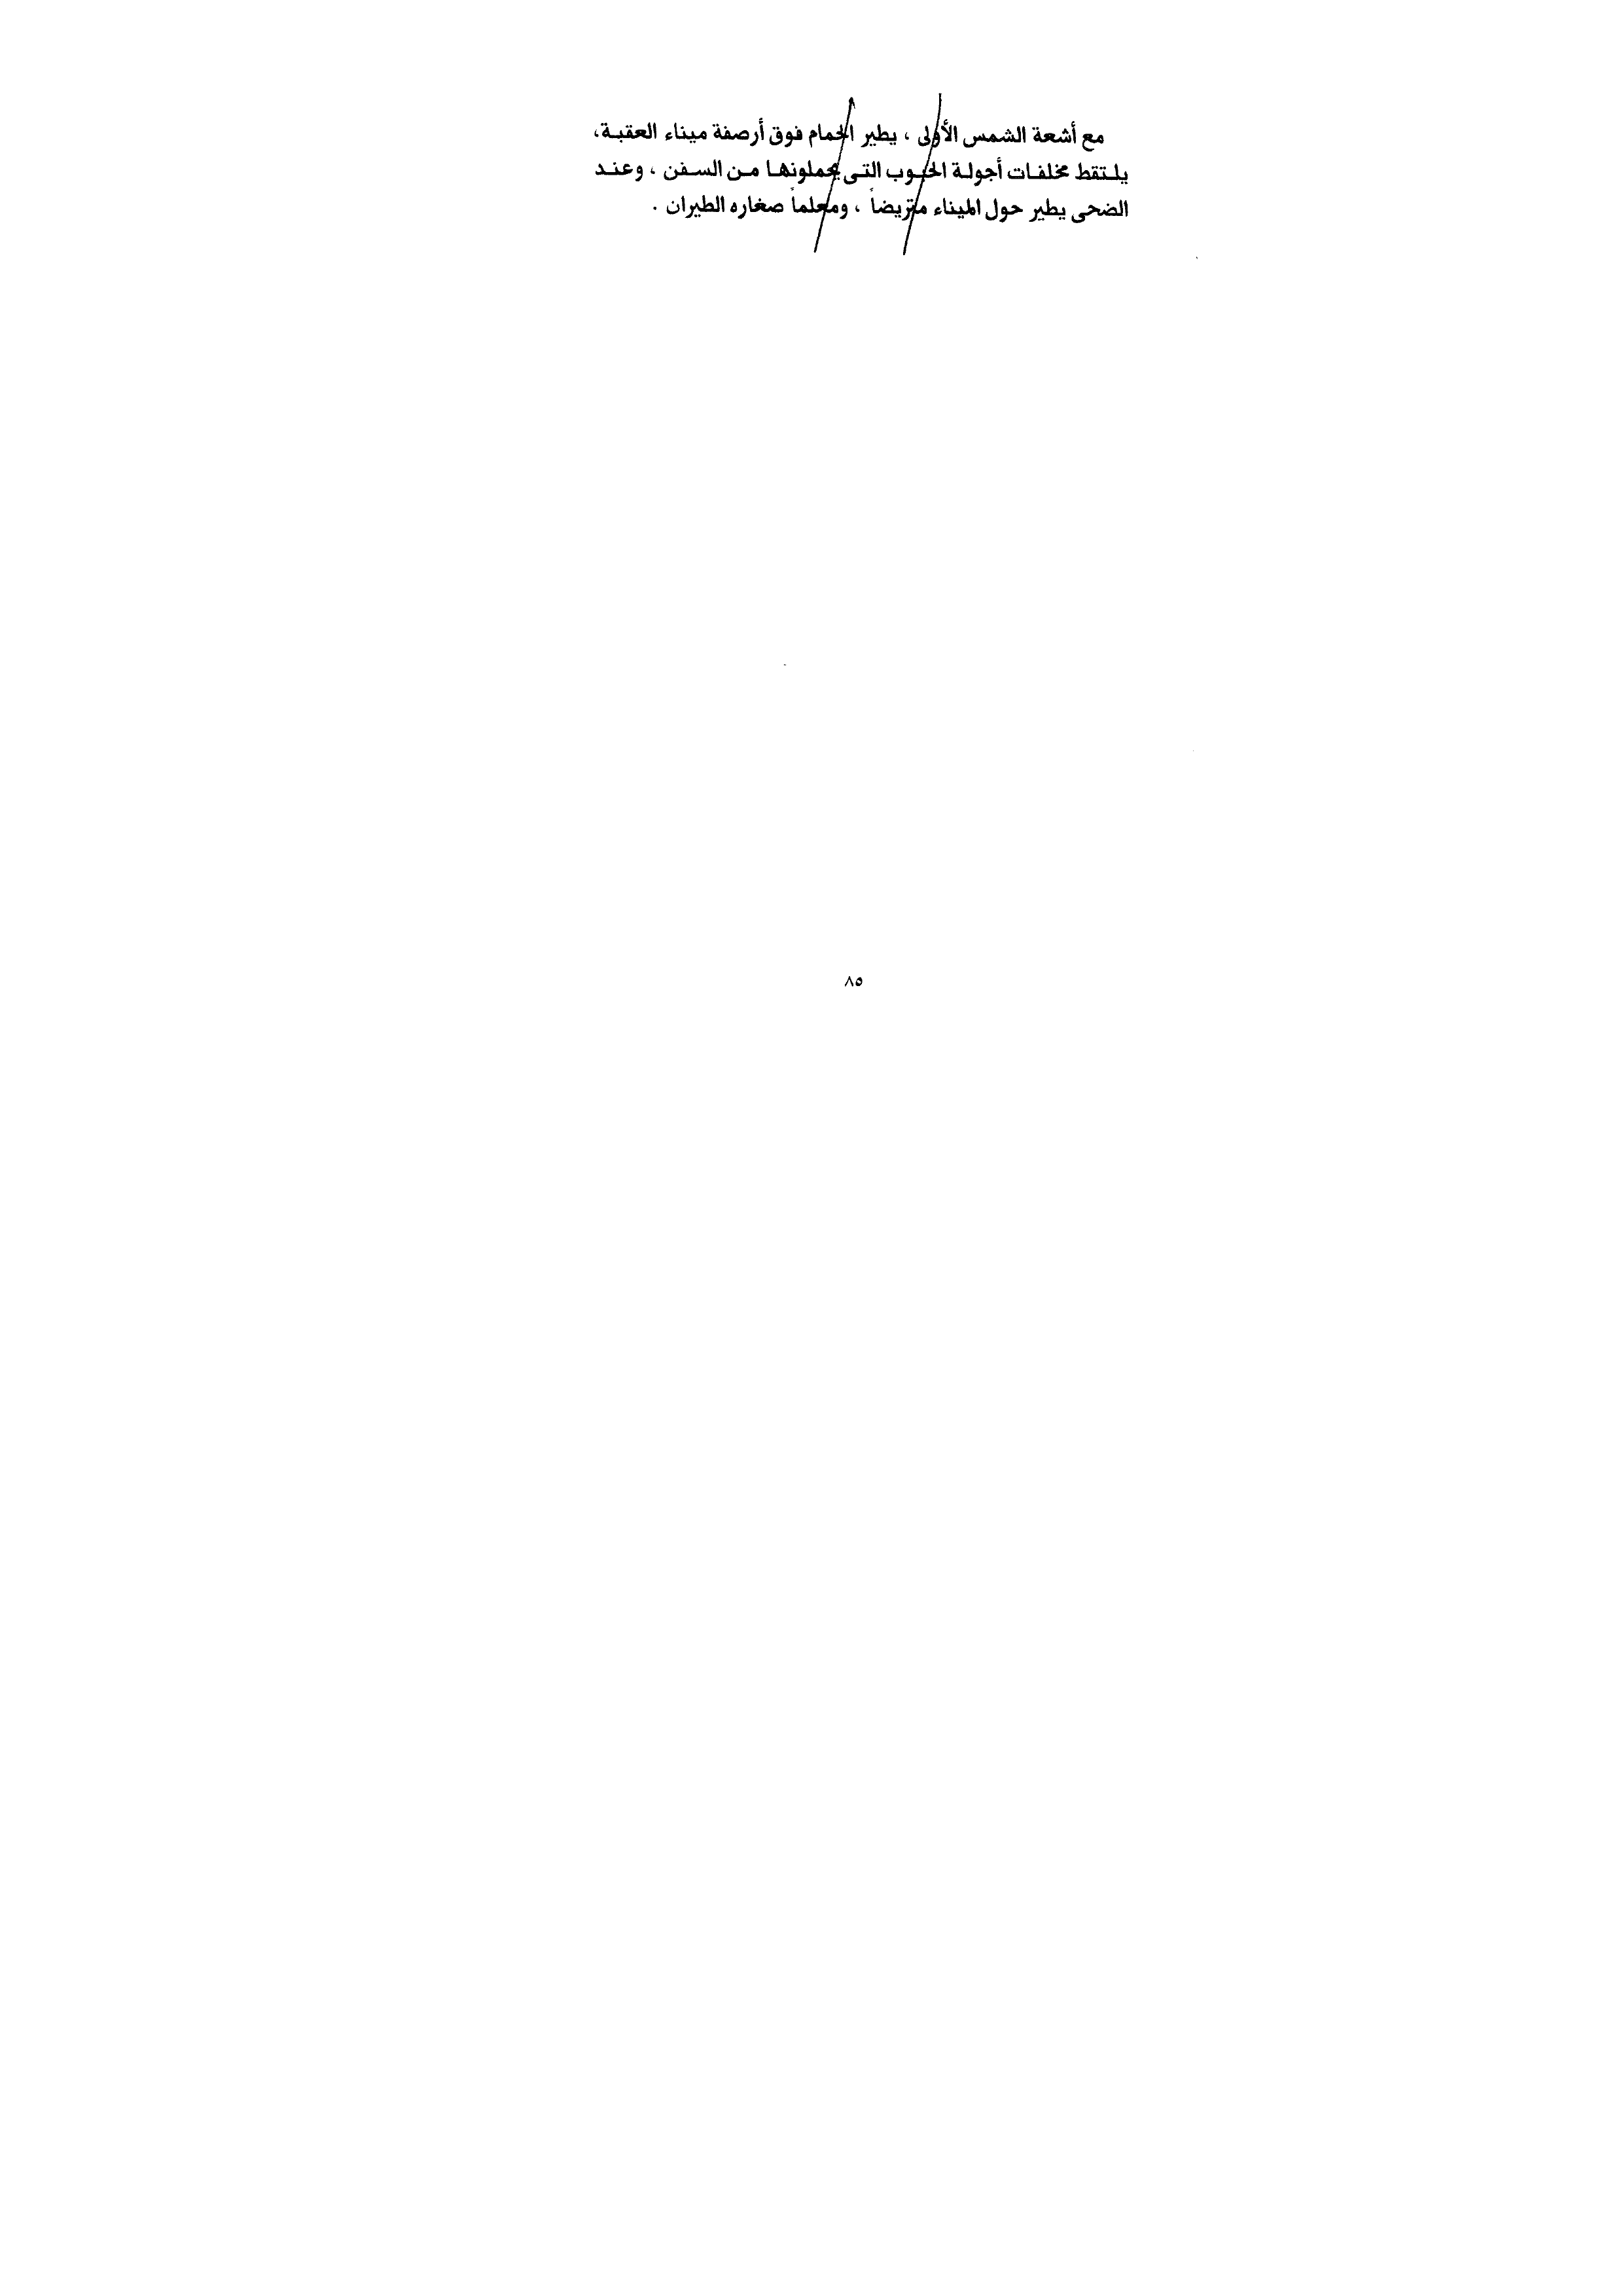 مع أشعة الشمس الأولى ، يطير الحمام فوق أرصفة ميناء العقبة،
يلتقط مخلفات أجولة الحبوب التى يحملونها من السفن ، وعند
الضحى يطير حول الميناء متريضاً ، ومعلماً صغاره الطيران .
٨٥